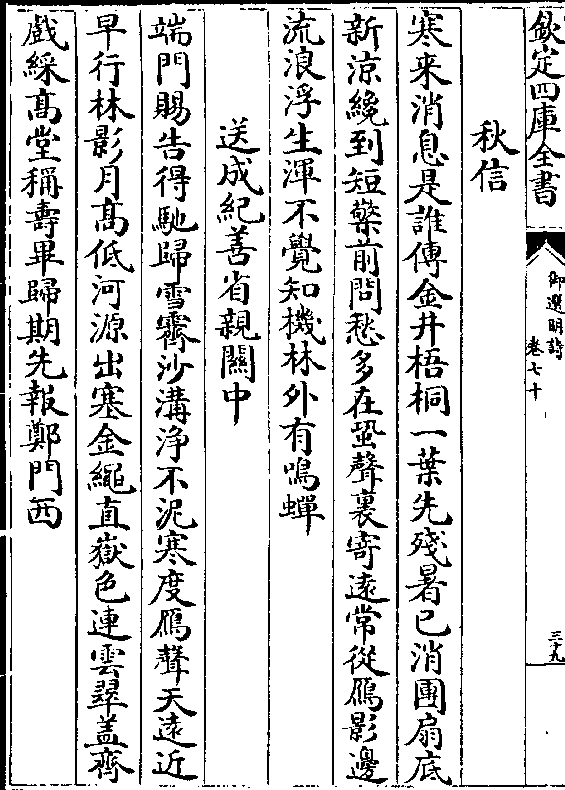 欽定四庫全書
御選明詩
卷七十
三十九
秋信
寒来消息是誰傳金井梧桐一葉先殘暑已消團扇底
新涼纔到短檠前問愁多在蛩聲裏寄遠常從鴈影邊
流浪浮生渾不覺知機林外有鳴蟬
送成紀善省親關中
端門賜告得馳歸雪霽沙溝浄不泥寒度鴈聲天遠近
早行林影月高低河源出塞金繩直嶽色連雲翠盖齊
戲綵高堂稱壽畢歸期先報鄭門西